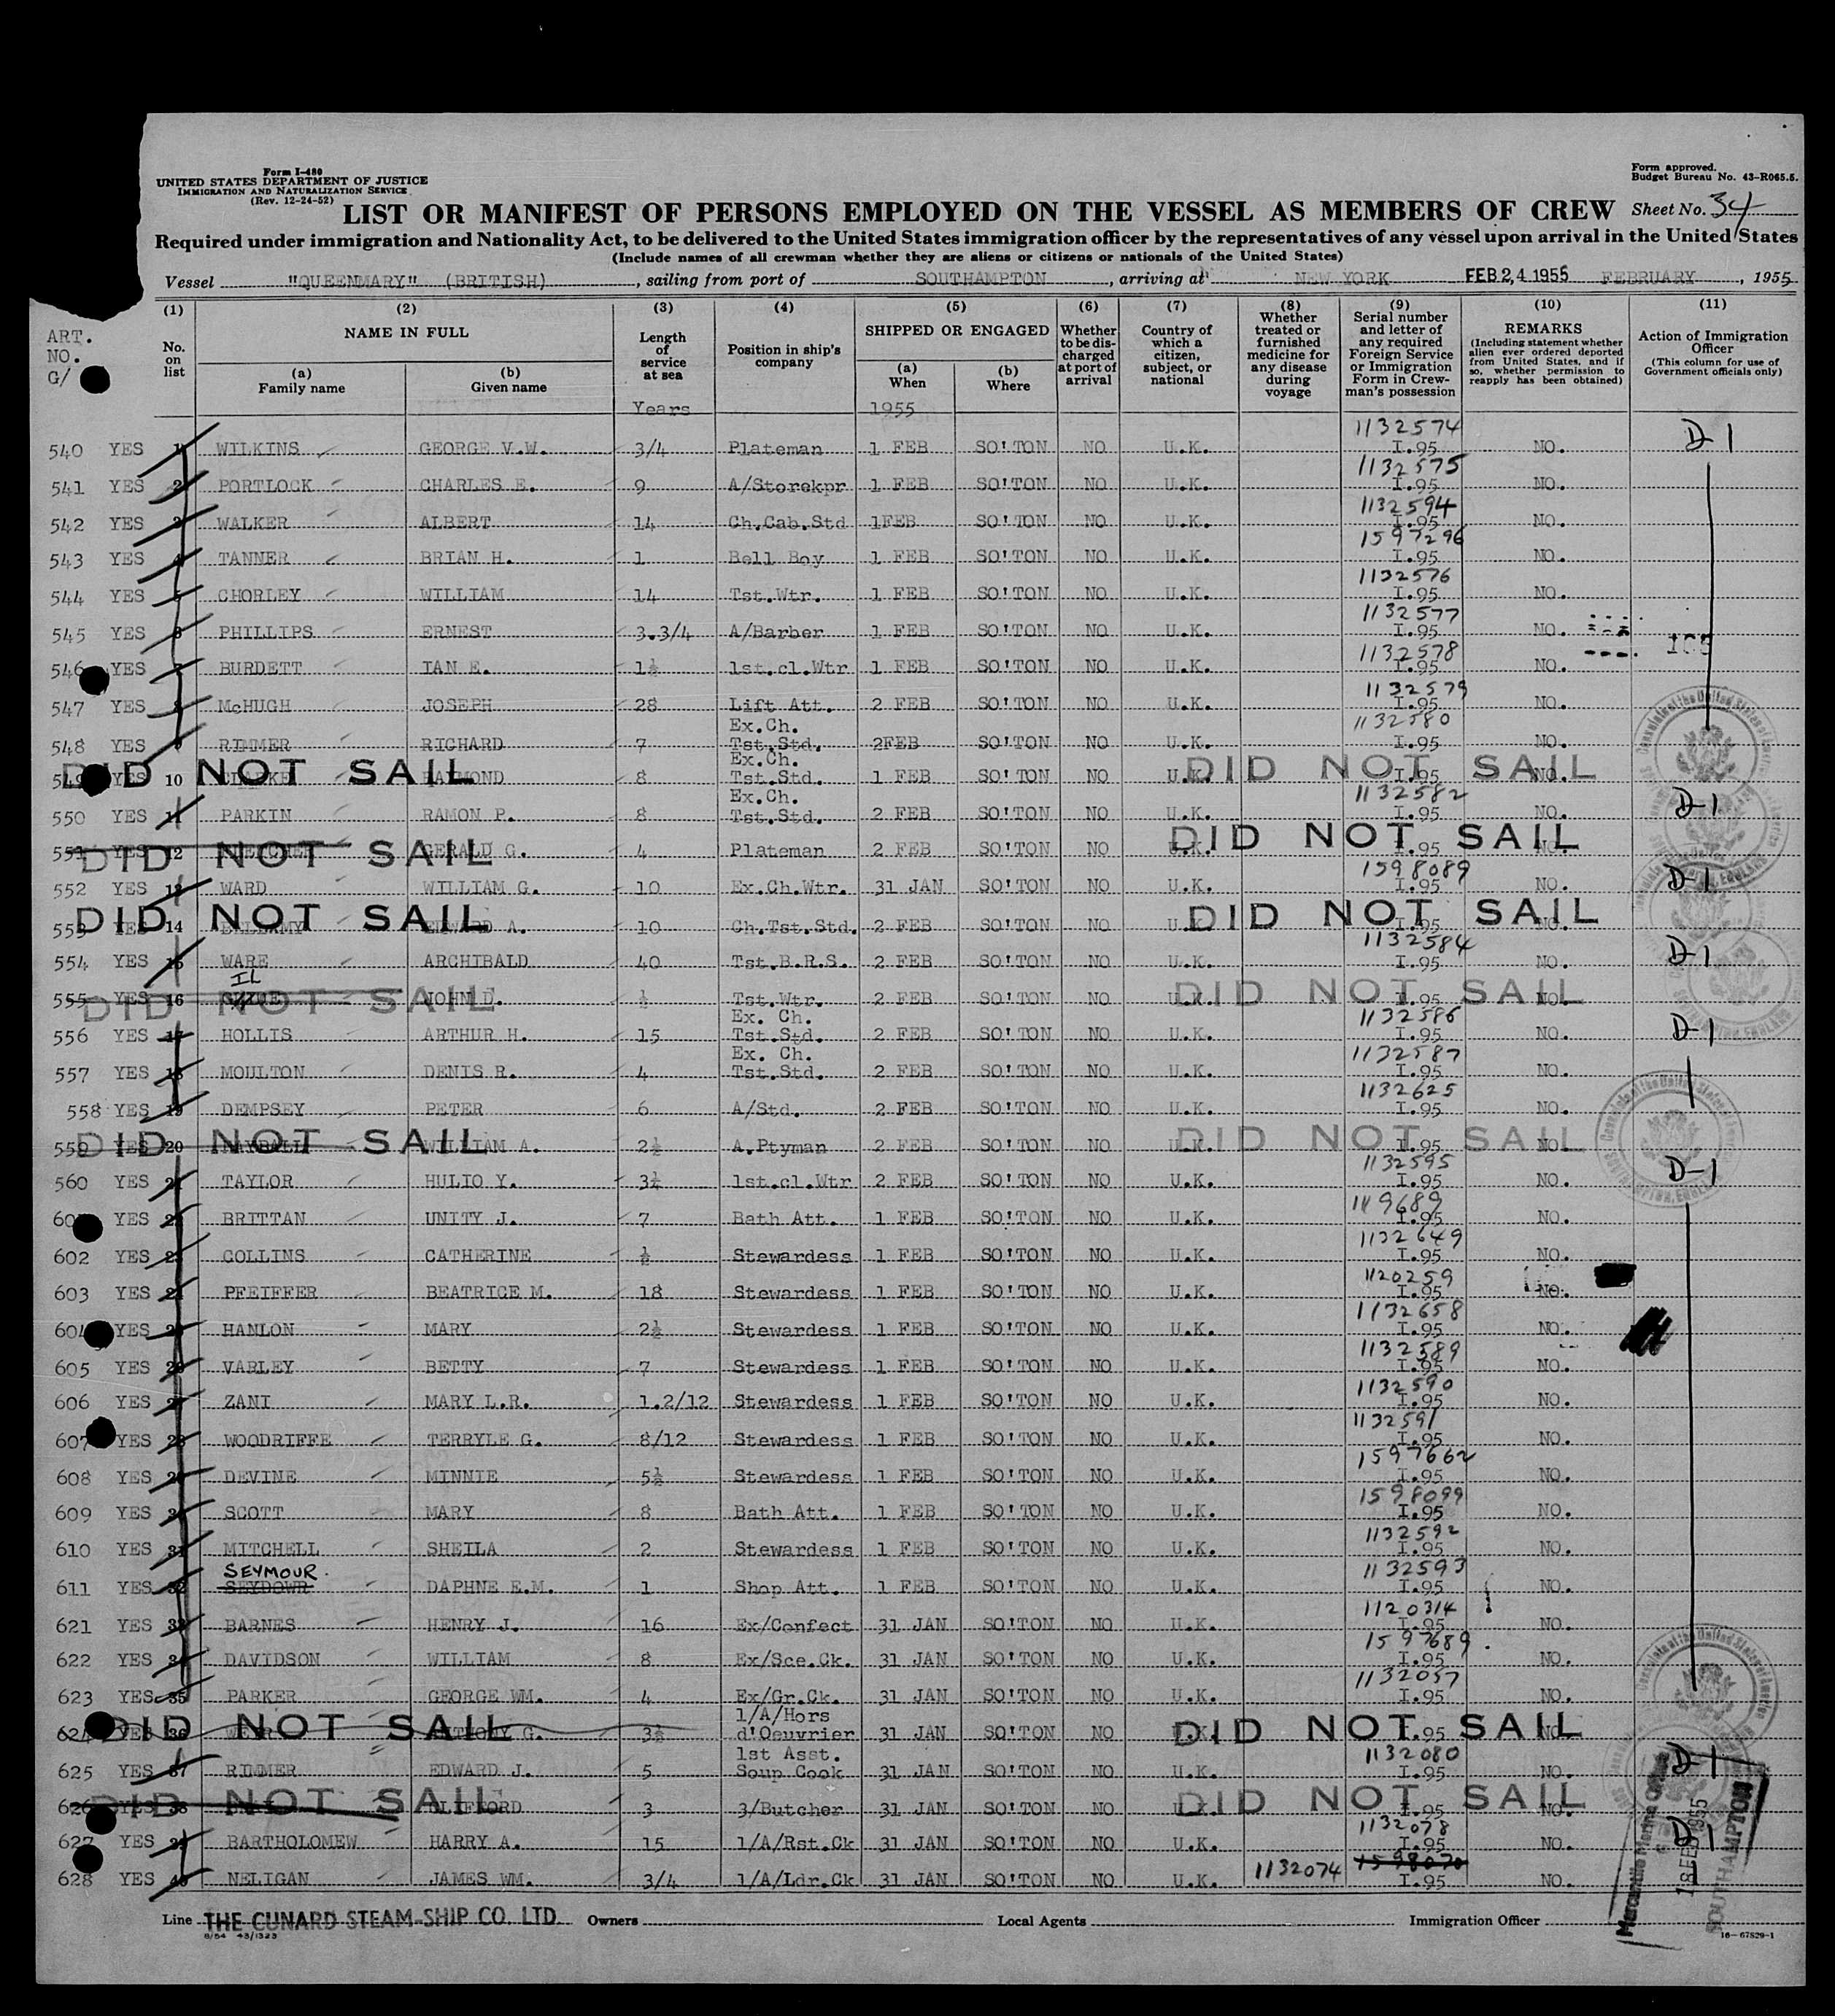 Form I-480
UNITED STATES DEPARTMENT OF JUSTICE
IMMIGRATION AND NATURALIZATION SERVICE
(Rev. 12-24-52)
Form approved.
Budget Bureau No. 43-R065.5.
LIST OR MANIFEST OF PERSONS EMPLOYED ON THE VESSEL AS MEMBERS OF CREW Sheet No. 34
Required under immigration and Nationality Act, to be delivered to the United States immigration officer by the representatives of any vessel upon arrival in the United States
(Include names of all crewman whether they are aliens or citizens or nationals of the United States)
Vessel "QUEENMARY" (BRITISH), sailing from port of SOUTHAMPTON, arriving at NEW YORK FEB 2,4 1955 FEBRUARY, 1955
ART. NO. G/
(1) No. on list
(2) NAME IN FULL (a) Family name (b) Given name
(3) Length of service at sea
(4) Position in ship's company
(5) SHIPPED OR ENGAGED (a) When (b) Where
(6) Whether to be discharged at port of arrival
(7) Country of which a citizen, subject, or national
(8) Whether treated or furnished medicine for any disease during voyage
(9) Serial number and letter of any required Foreign Service or Immigration Form in Crewman's possession
(10) REMARKS (Including statement whether alien ever ordered deported from United States, and if so, whether permission to reapply has been obtained)
(11) Action of Immigration Officer (This column for use of Government officials only)
Years 1955
540 YES 1 WILKINS GEORGE V.W. 3/4 Plateman 1 FEB SO'TON NO U.K. 1132574 I.95 NO. D-1
541 YES 2 PORTLOCK CHARLES E. 9 A/Storekpr 1 FEB SO'TON NO U.K. 1132575 I.95 NO.
542 YES 3 WALKER ALBERT 14 Ch.Cab.Std 1FEB SO'TON NO U.K. 1132594 I.95 NO.
543 YES 4 TANNER BRIAN H. 1 Bell Boy 1 FEB SO'TON NO U.K. 1597296 I.95 NO.
544 YES 5 CHORLEY WILLIAM 14 Tst.Wtr. 1 FEB SO'TON NO U.K. 1132576 I.95 NO.
545 YES 6 PHILLIPS ERNEST 3.3/4 A/Barber 1 FEB SO'TON NO U.K. 1132577 I.95 NO.
546 YES 7 BURDETT IAN E. 1½ 1st.cl.Wtr 1 FEB SO'TON NO U.K. 1132578 I.95 NO.
547 YES 8 McHUGH JOSEPH 28 Lift Att. 2 FEB SO'TON NO U.K. 1132579 I.95 NO.
548 YES 9 RIMMER RICHARD 7 Ex.Ch. Tst.Std. 2FEB SO'TON NO U.K. 1132580 I.95 NO.
549 YES 10 CLARKE RAYMOND 8 Ex.Ch. Tst.Std. 1 FEB SO'TON NO U.K. I.95 NO. DID NOT SAIL DID NOT SAIL
550 YES 11 PARKIN RAMON P. 8 Ex.Ch. Tst.Std. 2 FEB SO'TON NO U.K. 1132582 I.95 NO. D-1
551 YES 12 GERALD G. 4 Plateman 2 FEB SO'TON NO U.K. I.95 NO. DID NOT SAIL DID NOT SAIL
552 YES 13 WARD WILLIAM G. 10 Ex.Ch.Wtr. 31 JAN SO'TON NO U.K. 1598089 I.95 NO. D-1
553 YES 14 EDWARD A. 10 Ch.Tst.Std. 2 FEB SO'TON NO U.K. I.95 NO. DID NOT SAIL DID NOT SAIL
554 YES 15 WARE ARCHIBALD 40 Tst.B.R.S. 2 FEB SO'TON NO U.K. 1132584 I.95 NO. D-1
555 YES 16 IL JOHN D. ½ Tst.Wtr. 2 FEB SO'TON NO U.K. I.95 NO. DID NOT SAIL DID NOT SAIL
556 YES 17 HOLLIS ARTHUR H. 15 Ex. Ch. Tst.Std. 2 FEB SO'TON NO U.K. 1132586 I.95 NO. D-1
557 YES 18 MOULTON DENIS R. 4 Ex. Ch. Tst.Std. 2 FEB SO'TON NO U.K. 1132587 I.95 NO.
558 YES 19 DEMPSEY PETER 6 A/Std. 2 FEB SO'TON NO U.K. 1132625 I.95 NO.
559 YES 20 WILLIAM A. 2½ A.Ptyman 2 FEB SO'TON NO U.K. I.95 NO. DID NOT SAIL DID NOT SAIL
560 YES 21 TAYLOR HULIO Y. 3¼ 1st.cl.Wtr 2 FEB SO'TON NO U.K. 1132595 I.95 NO. D-1
YES 22 BRITTAN UNITY J. 7 Bath Att. 1 FEB SO'TON NO U.K. 1119689 I.95 NO.
602 YES 23 COLLINS CATHERINE ½ Stewardess 1 FEB SO'TON NO U.K. 1132649 I.95 NO.
603 YES 24 PFEIFFER BEATRICE M. 18 Stewardess 1 FEB SO'TON NO U.K. 1120259 I.95 NO.
604 YES 25 HANLON MARY 2½ Stewardess 1 FEB SO'TON NO U.K. 1132658 I.95 NO.
605 YES 26 VARLEY BETTY 7 Stewardess 1 FEB SO'TON NO U.K. 1132589 I.95 NO.
606 YES 27 ZANI MARY L.R. 1.2/12 Stewardess 1 FEB SO'TON NO U.K. 1132590 I.95 NO.
607 YES 28 WOODRIFFE TERRYLE G. 8/12 Stewardess 1 FEB SO'TON NO U.K. 1132591 I.95 NO.
608 YES 29 DEVINE MINNIE 5½ Stewardess 1 FEB SO'TON NO U.K. 1597662 I.95 NO.
609 YES 30 SCOTT MARY 8 Bath Att. 1 FEB SO'TON NO U.K. 1598099 I.95 NO.
610 YES 31 MITCHELL SHEILA 2 Stewardess 1 FEB SO'TON NO U.K. 1132592 I.95 NO.
611 YES 32 SEYMOUR. SEYDOWR DAPHNE E.M. 1 Shop Att. 1 FEB SO'TON NO U.K. 1132593 I.95 NO.
621 YES 33 BARNES HENRY J. 16 Ex/Confect 31 JAN SO'TON NO U.K. 1120314 I.95 NO.
622 YES 34 DAVIDSON WILLIAM 8 Ex/Sce.Ck. 31 JAN SO'TON NO U.K. 1597689. I.95 NO.
623 YES 35 PARKER GEORGE WM. 4 Ex/Gr.Ck. 31 JAN SO'TON NO U.K. 1132057 I.95 NO.
624 YES 36 ANTHONY G. 3½ 1/A/Hors d'Oeuvrier 31 JAN SO'TON NO U.K. I.95 NO. DID NOT SAIL DID NOT SAIL
625 YES 37 RIMMER EDWARD J. 5 1st Asst. Soup Cook 31 JAN SO'TON NO U.K. 1132080 I.95 NO. D-1
626 YES 38 CLIFFORD 3 3/Butcher 31 JAN SO'TON NO U.K. I.95 NO. DID NOT SAIL DID NOT SAIL
627 YES 39 BARTHOLOMEW HARRY A. 15 1/A/Rst.Ck 31 JAN SO'TON NO U.K. 1132078 I.95 NO. D-1
628 YES 40 NELIGAN JAMES WM. 3/4 1/A/Ldr.Ck 31 JAN SO'TON NO U.K. 1132074 1598070 I.95 NO.
Mercantile Marine Office
18 FEB 1955
SOUTHAMPTON
Line THE CUNARD STEAM-SHIP CO. LTD. Owners Local Agents Immigration Officer
8/54 43/1323
16—67829-1